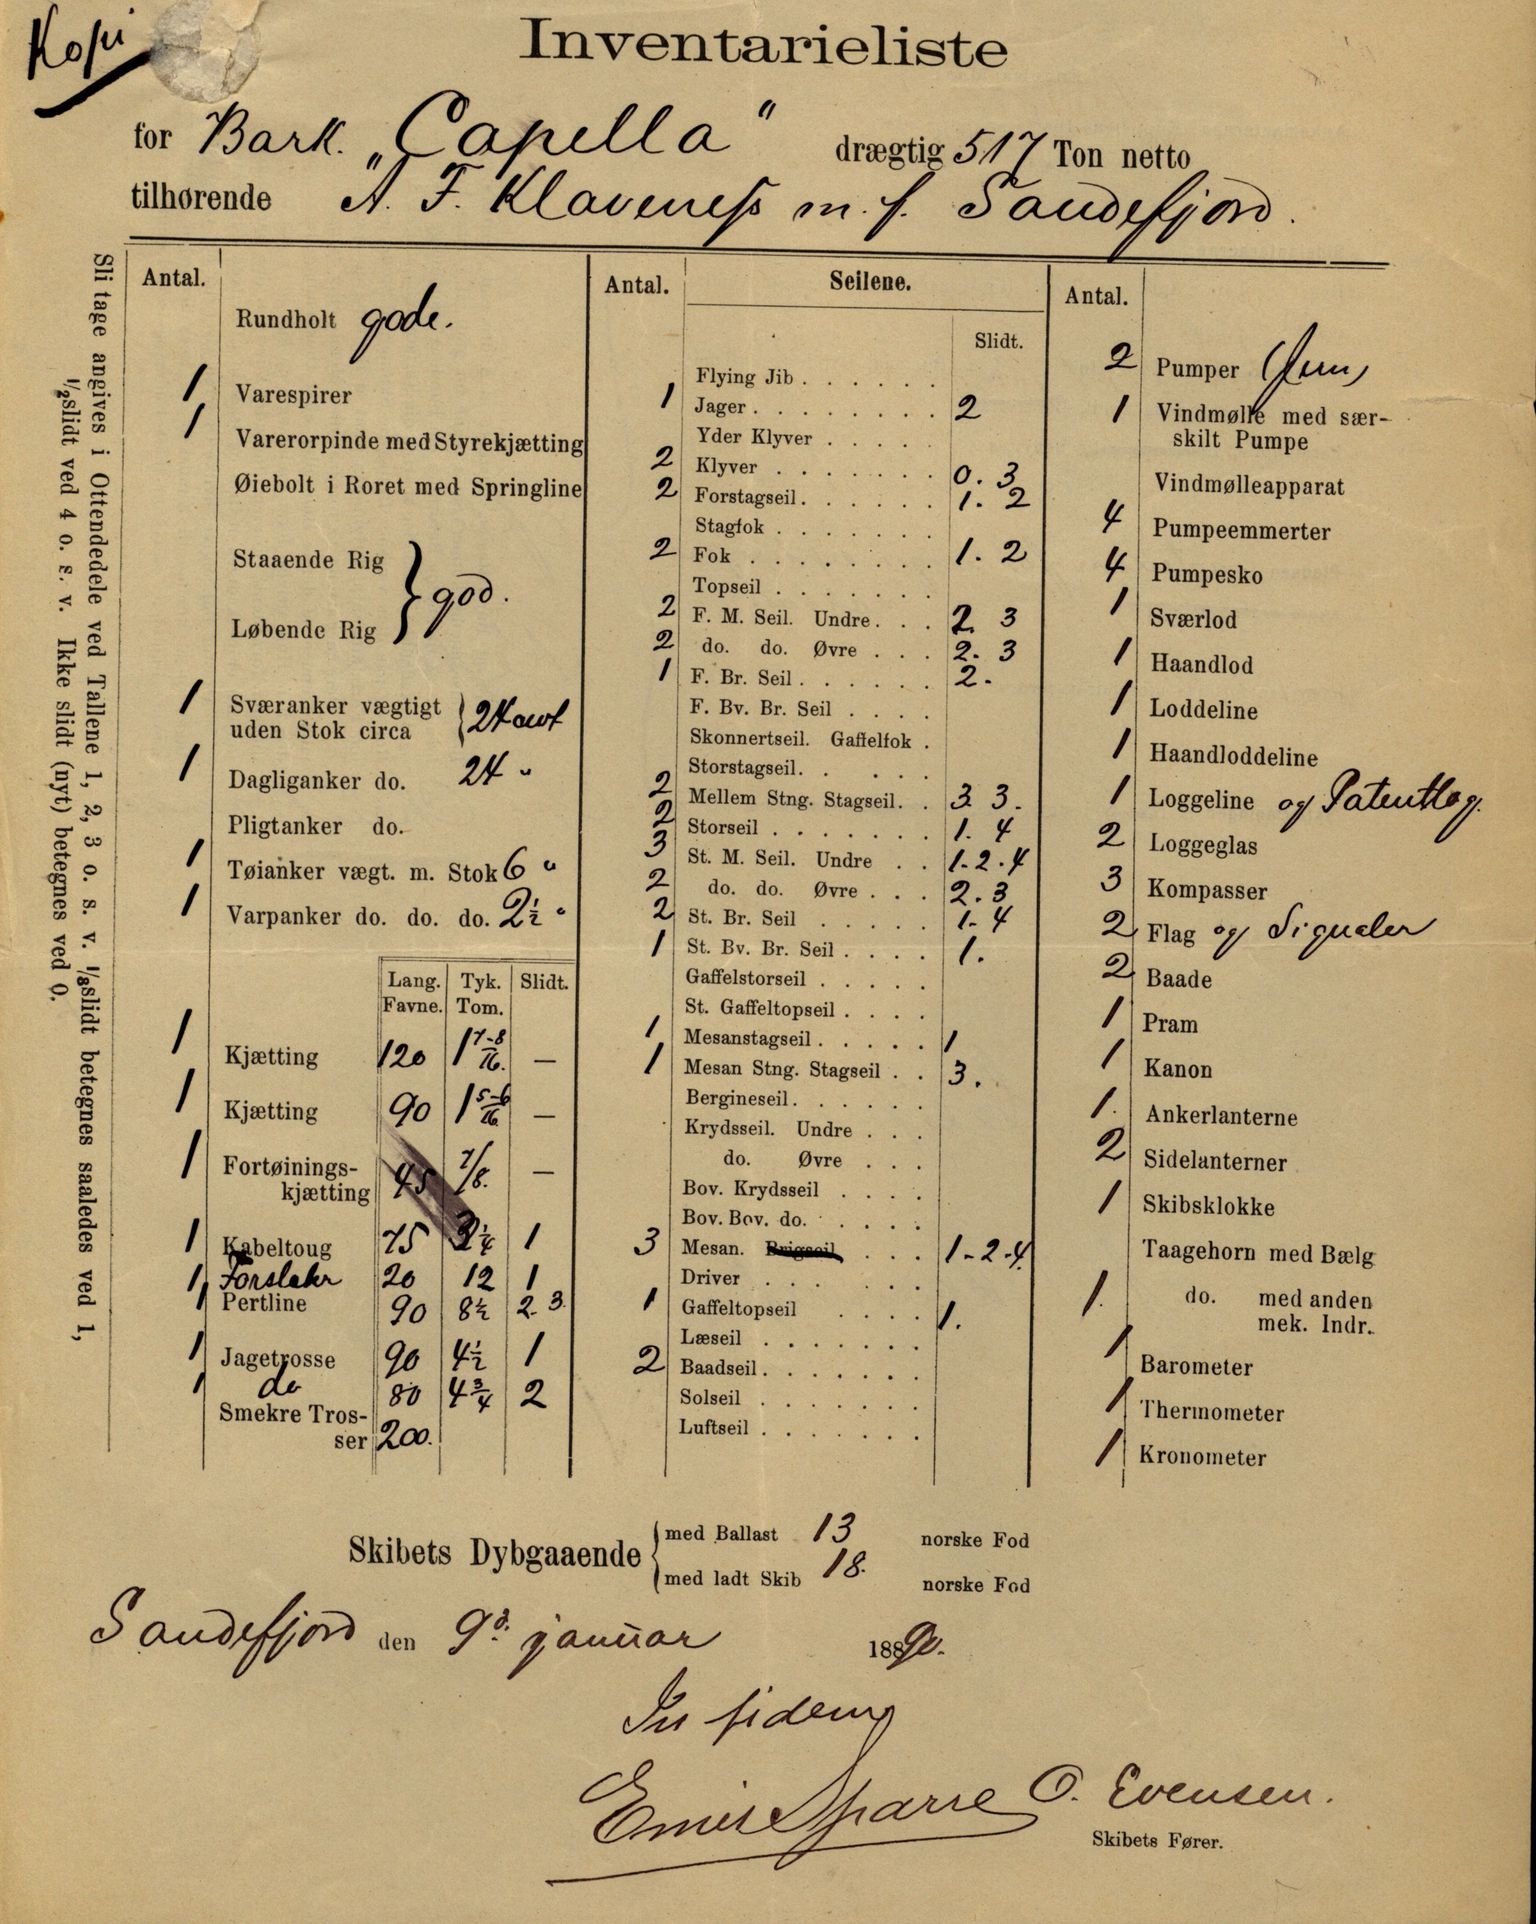 Kopi
Inventarieliste
for Bark. „Capella“ drægtig 517 Ton netto
tilhørende A. F. Klaveness m. f. Sandefjord.
Sli tage angives i Ottendedele ved Tallene 1, 2, 3 o. s. v. 1/8 slidt betegnes saaledes ved 1,
1/2 slidt ved 4 o. s. v. Ikke slidt (nyt) betegnes ved 0.
Antal.
Rundholt gode.
1 Varespirer
1 Varerorpinde med Styrekjætting
Øiebolt i Roret med Springline
Staaende Rig
Løbende Rig } god.
1 Sværanker vægtigt
uden Stok circa { 24 cwt
1 Dagliganker do. 24 "
Pligtanker do.
1 Tøianker vægt. m. Stok 6 "
1 Varpanker do. do. do. 2 1/2 "
Lang. Tyk. Slidt.
Favne. Tom.
1 Kjætting 120 1 7-8/16. —
1 Kjætting 90 1 5-6/16. —
1 Fortøinings-
kjætting 45 7/8. —
1 Kabeltoug 75 3 1/4 1
1 Forslehr 20 12 1
1 Pertline 90 8 1/2 2. 3.
1 Jagetrosse 90 4 1/2 1
1 do 80 4 3/4 2
Smekre Tros-
ser 200.
Antal. Seilene.
Slidt.
Flying Jib . . . . .
1 Jager . . . . . . . 2
Yder Klyver . . . .
2 Klyver . . . . . . 0. 3
2 Forstagseil . . . . . 1. 2
Stagfok . . . . . .
2 Fok . . . . . . . 1. 2
Topseil . . . . . .
2 F. M. Seil. Undre . . . 2. 3
2 do. do. Øvre . . . 2. 3
1 F. Br. Seil . . . . . 2.
F. Bv. Br. Seil . . . .
Skonnertseil. Gaffelfok .
Storstagseil. . . . .
2 Mellem Stng. Stagseil. . 3 3.
2 Storseil . . . . . . 1. 4
3 St. M. Seil. Undre . . 1-2-4
2 do. do. Øvre . . . 2. 3
2 St. Br. Seil . . . . . 1-4
1 St. Bv. Br. Seil . . . . 1.
Gaffelstorseil . . . . .
St. Gaffeltopseil . . . .
1 Mesanstagseil . . . . . 1
1 Mesan Stng. Stagseil . . 3.
Bergineseil. . . . . .
Krydsseil. Undre . . .
do. Øvre . . .
Bov. Krydsseil . . . .
Bov. Bov. do. . . . .
3 Mesan. Brigseil . . . 1-2-4.
Driver . . . . .
1 Gaffeltopseil . . . . 1.
Læseil . . . . . . .
2 Baadseil . . . . . .
Solseil . . . . . .
Luftseil . . . . . .
Antal.
2 Pumper (Jern)
1 Vindmølle med sær-
skilt Pumpe
Vindmølleapparat
4 Pumpeemmerter
4 Pumpesko
1 Sværlod
1 Haandlod
1 Loddeline
1 Haandloddeline
1 Loggeline og Patentlog.
2 Loggeglas
3 Kompasser
2 Flag og Signaler
2 Baade
1 Pram
1 Kanon
1. Ankerlanterne
2 Sidelanterner
1 Skibsklokke
Taagehorn med Bælg
1. do. med anden
mek. Indr.
1 Barometer
1 Thermometer
1 Kronometer
Skibets Dybgaaende { med Ballast 13 norske Fod
med ladt Skib 18. norske Fod
Sandefjord den 9d. januar 1890.
In fidem
Emil Sparre O. Evensen.
Skibets Fører.